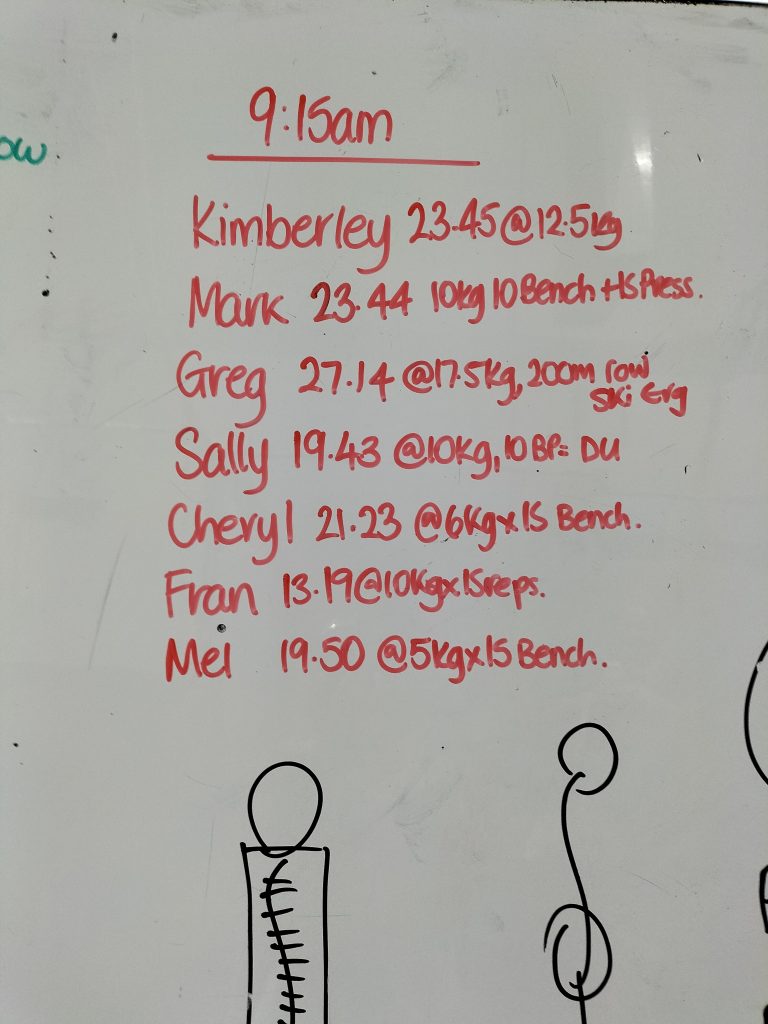 9:15am
ow
Kimberley 23.45@12.5kg
Mark 23.44 10kg 10 Bench + HS Press.
Greg 27.14 @17.5kg, 200m row
Ski Erg
Sally 19.43 @10kg, 10 BP= DU
Cheryl 21.23 @6kg x 15 Bench.
Fran 13.19@10kgx15reps.
Mel 19.50 @5kgx15 Bench.